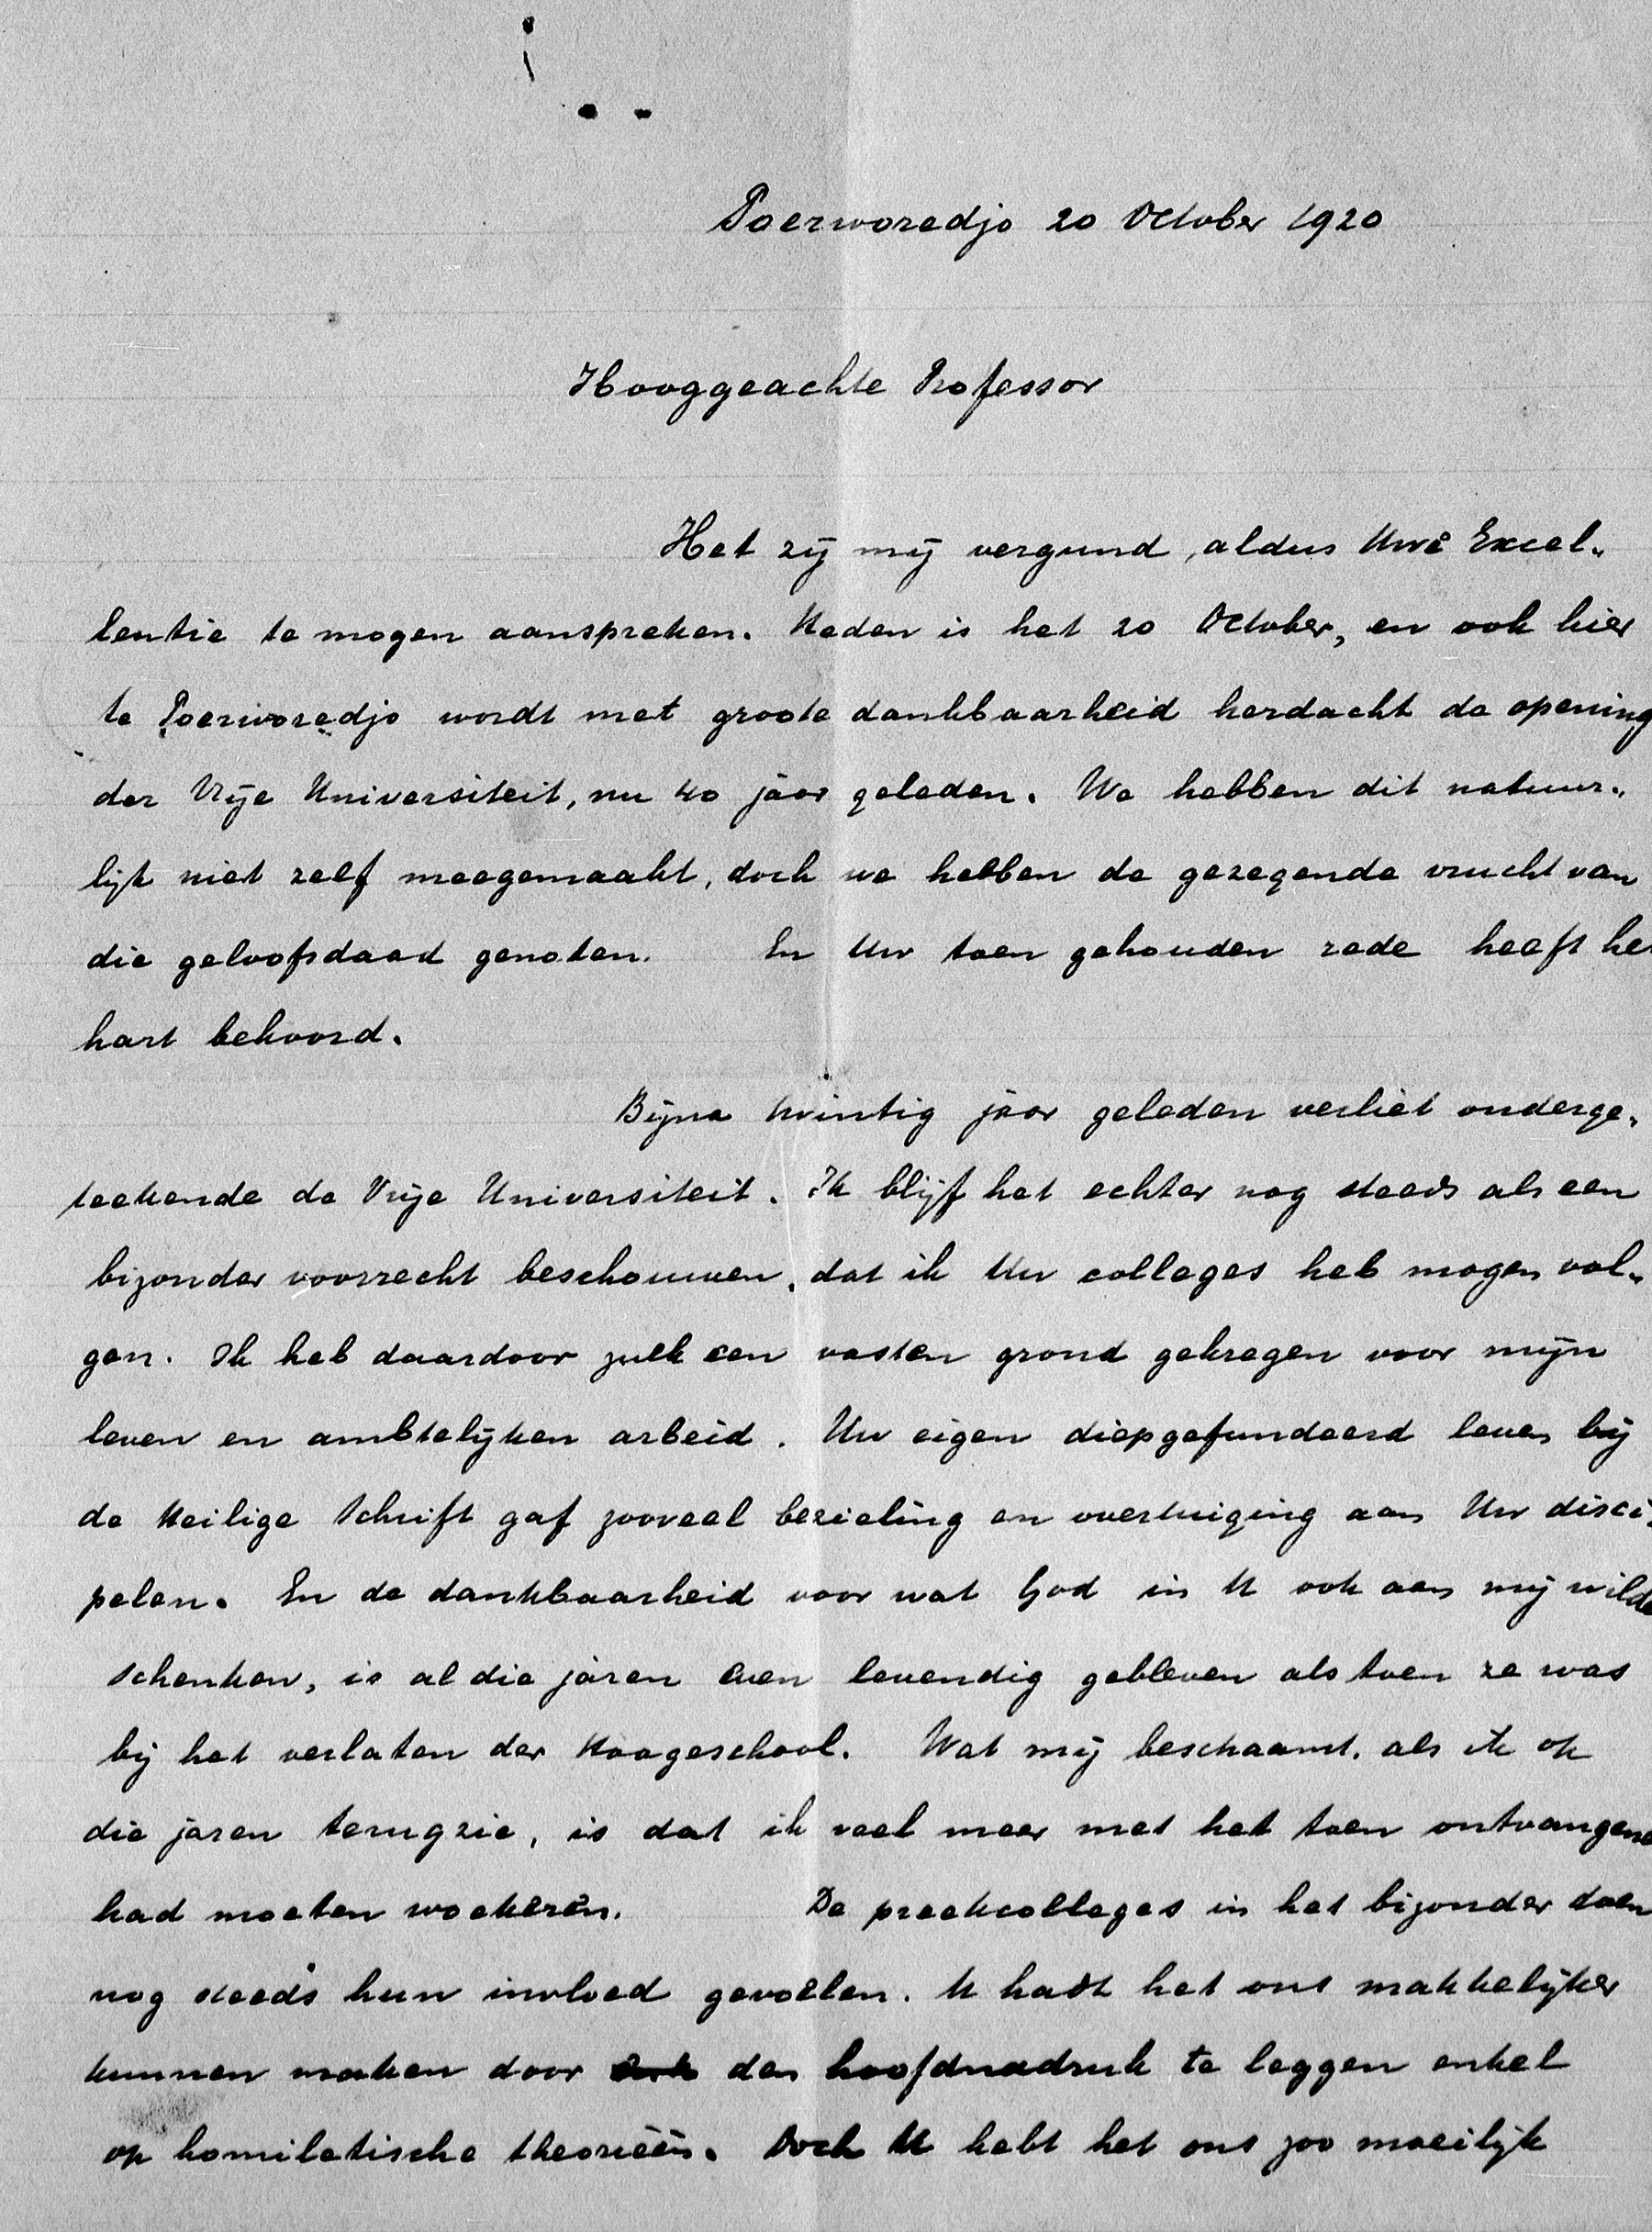 Poerworedjo 20 October 1920
Hooggeachte Professor
Het zij mij vergund, aldus Uwe Excel„
lentie te mogen aanspreken. Heden is het 20 October, en ook hier
te Poerworedjo wordt met groote dankbaarheid herdacht de opening
der Vrije Universiteit, nu 40 jaar geleden. We hebben dit natuur„
lijk niet zelf meegemaakt, doch we hebben de gezegende vrucht van
die geloofsdaad genoten. En Uw toen gehouden rede heeft het
hart bekoord.
Bijna twintig jaar geleden verliet onderge„
teekende de Vrije Universiteit. Ik blijf het echter nog steeds als een
bijzonder voorrecht beschouwen, dat ik Uw colleges heb mogen vol„
gen. Ik heb daardoor zulk een vasten grond gekregen voor mijn
leven en ambtelijken arbeid. Uw eigen diepgefundeerd leven bij
de Heilige Schrift gaf zooveel bezieling en overtuiging aan Uw disci„
pelen. En de dankbaarheid voor wat God in U ook aan mij wilde
schenken, is al die jaren even levendig gebleven als toen ze was
bij het verlaten der Hoogeschool. Wat mij beschaamt, als ik op
die jaren terugzie, is dat ik veel meer met het toen ontvangene
had moeten woekeren. De preekcolleges in het bijzonder doen
nog steeds hun invloed gevoelen. U hadt het ons makkelijker
kunnen maken door den hoofdnadruk te leggen enkel
op homiletische theorieën. Doch U hebt het ons zoo moeilijk